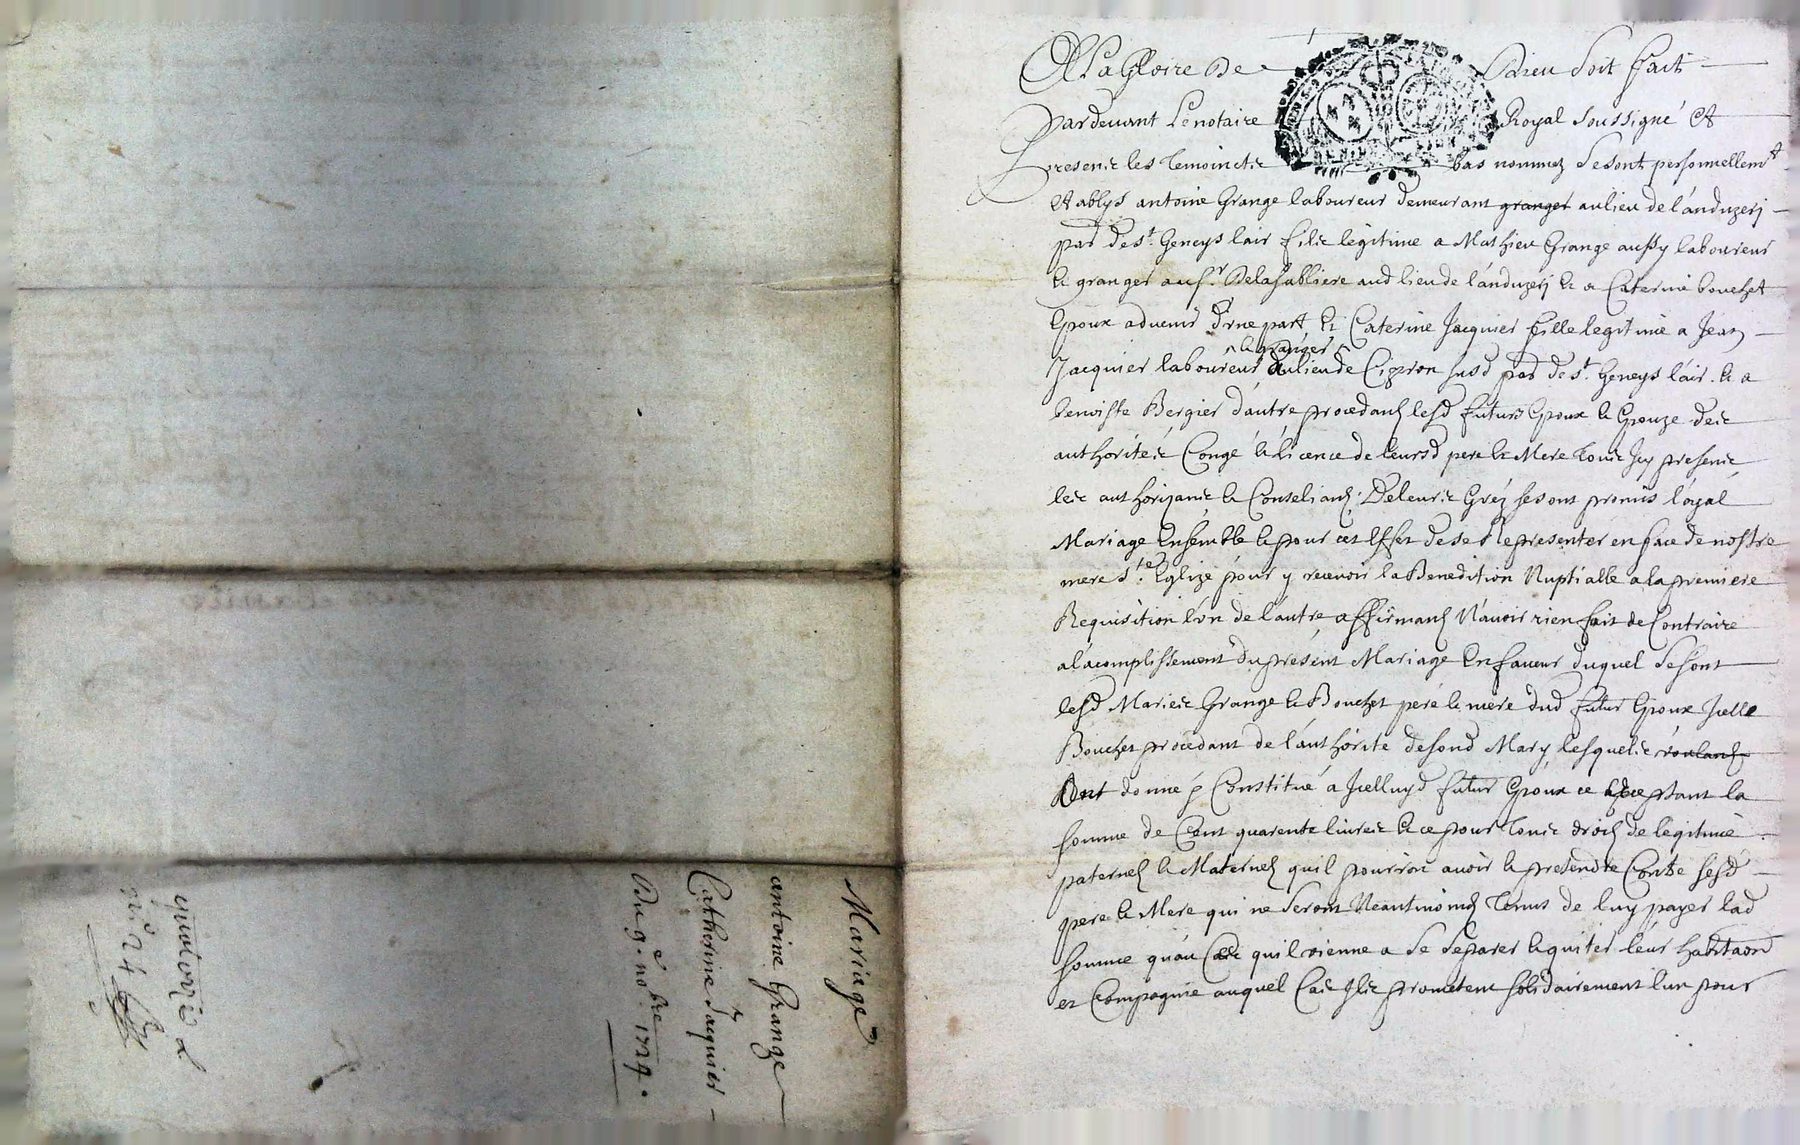 Mariage
antoine Grange
Catherine Jacquier
Du 9e nobre 1724.
A La Gloire De Dieu Soit fait
Pardevant Le notaire Royal Soussigné Et
presence les Temoinctz bas nommez Se sont personnellemt
Etablys antoine Grange laboureur demeurant granger au lieu de l'anduzerj
par de st. Geneys lair filz legitime a Mathieu Grange aussy laboureur
& granger au sr. De la sabliere aud lieu de l'anduzerj & a Caterine bouchet
Epoux advenir d'vne part, & Caterine Jacquier fille legitime a Jean
Jacquier laboureur & granger au lieu de Cizeron susd par de st. Geneys l'air. & a
benoiste Bergier d'autre procedans lesd futurs Epoux & Epouze de
authorité Congé & Licence de leursd pere & Mere Touz Icy presens
les authorizans & Conselians; De leurs Gréz se sont promis loyal
Mariage Ensemble & pour cet Effet de se Representer en face de nostre
mere ste. Eglize pour y recevoir la Benedition Nuptialle a la premiere
Requisition l'vn de l'autre, affirmans N'auoir rien fait de Contraire
a l'acomplissement du present Mariage En faveur duquel Se sont
lesd Mariez Grange & Bouchet pere & mere dud futur Epoux Icelle
Bouchet procedant de l'authórite de sond Mary, lesquelz voulans
Ont donné & Constitué a Icelluyd futur Epoux ce acceptant la
somme de Cent quarente livres & ce pour Touz drois de legitime
paternel & Maternel qu'il pourroit avoir & pretendre Contre sesd
pere & Mere qui ne Seront Neantmoins Tenus de luy payer lad
somme qu'au Cas qu'il vienne a Se Separer & quiter leur habitaon
et Compagnie auquel Cas Ilz prometent solidairement l'un pour